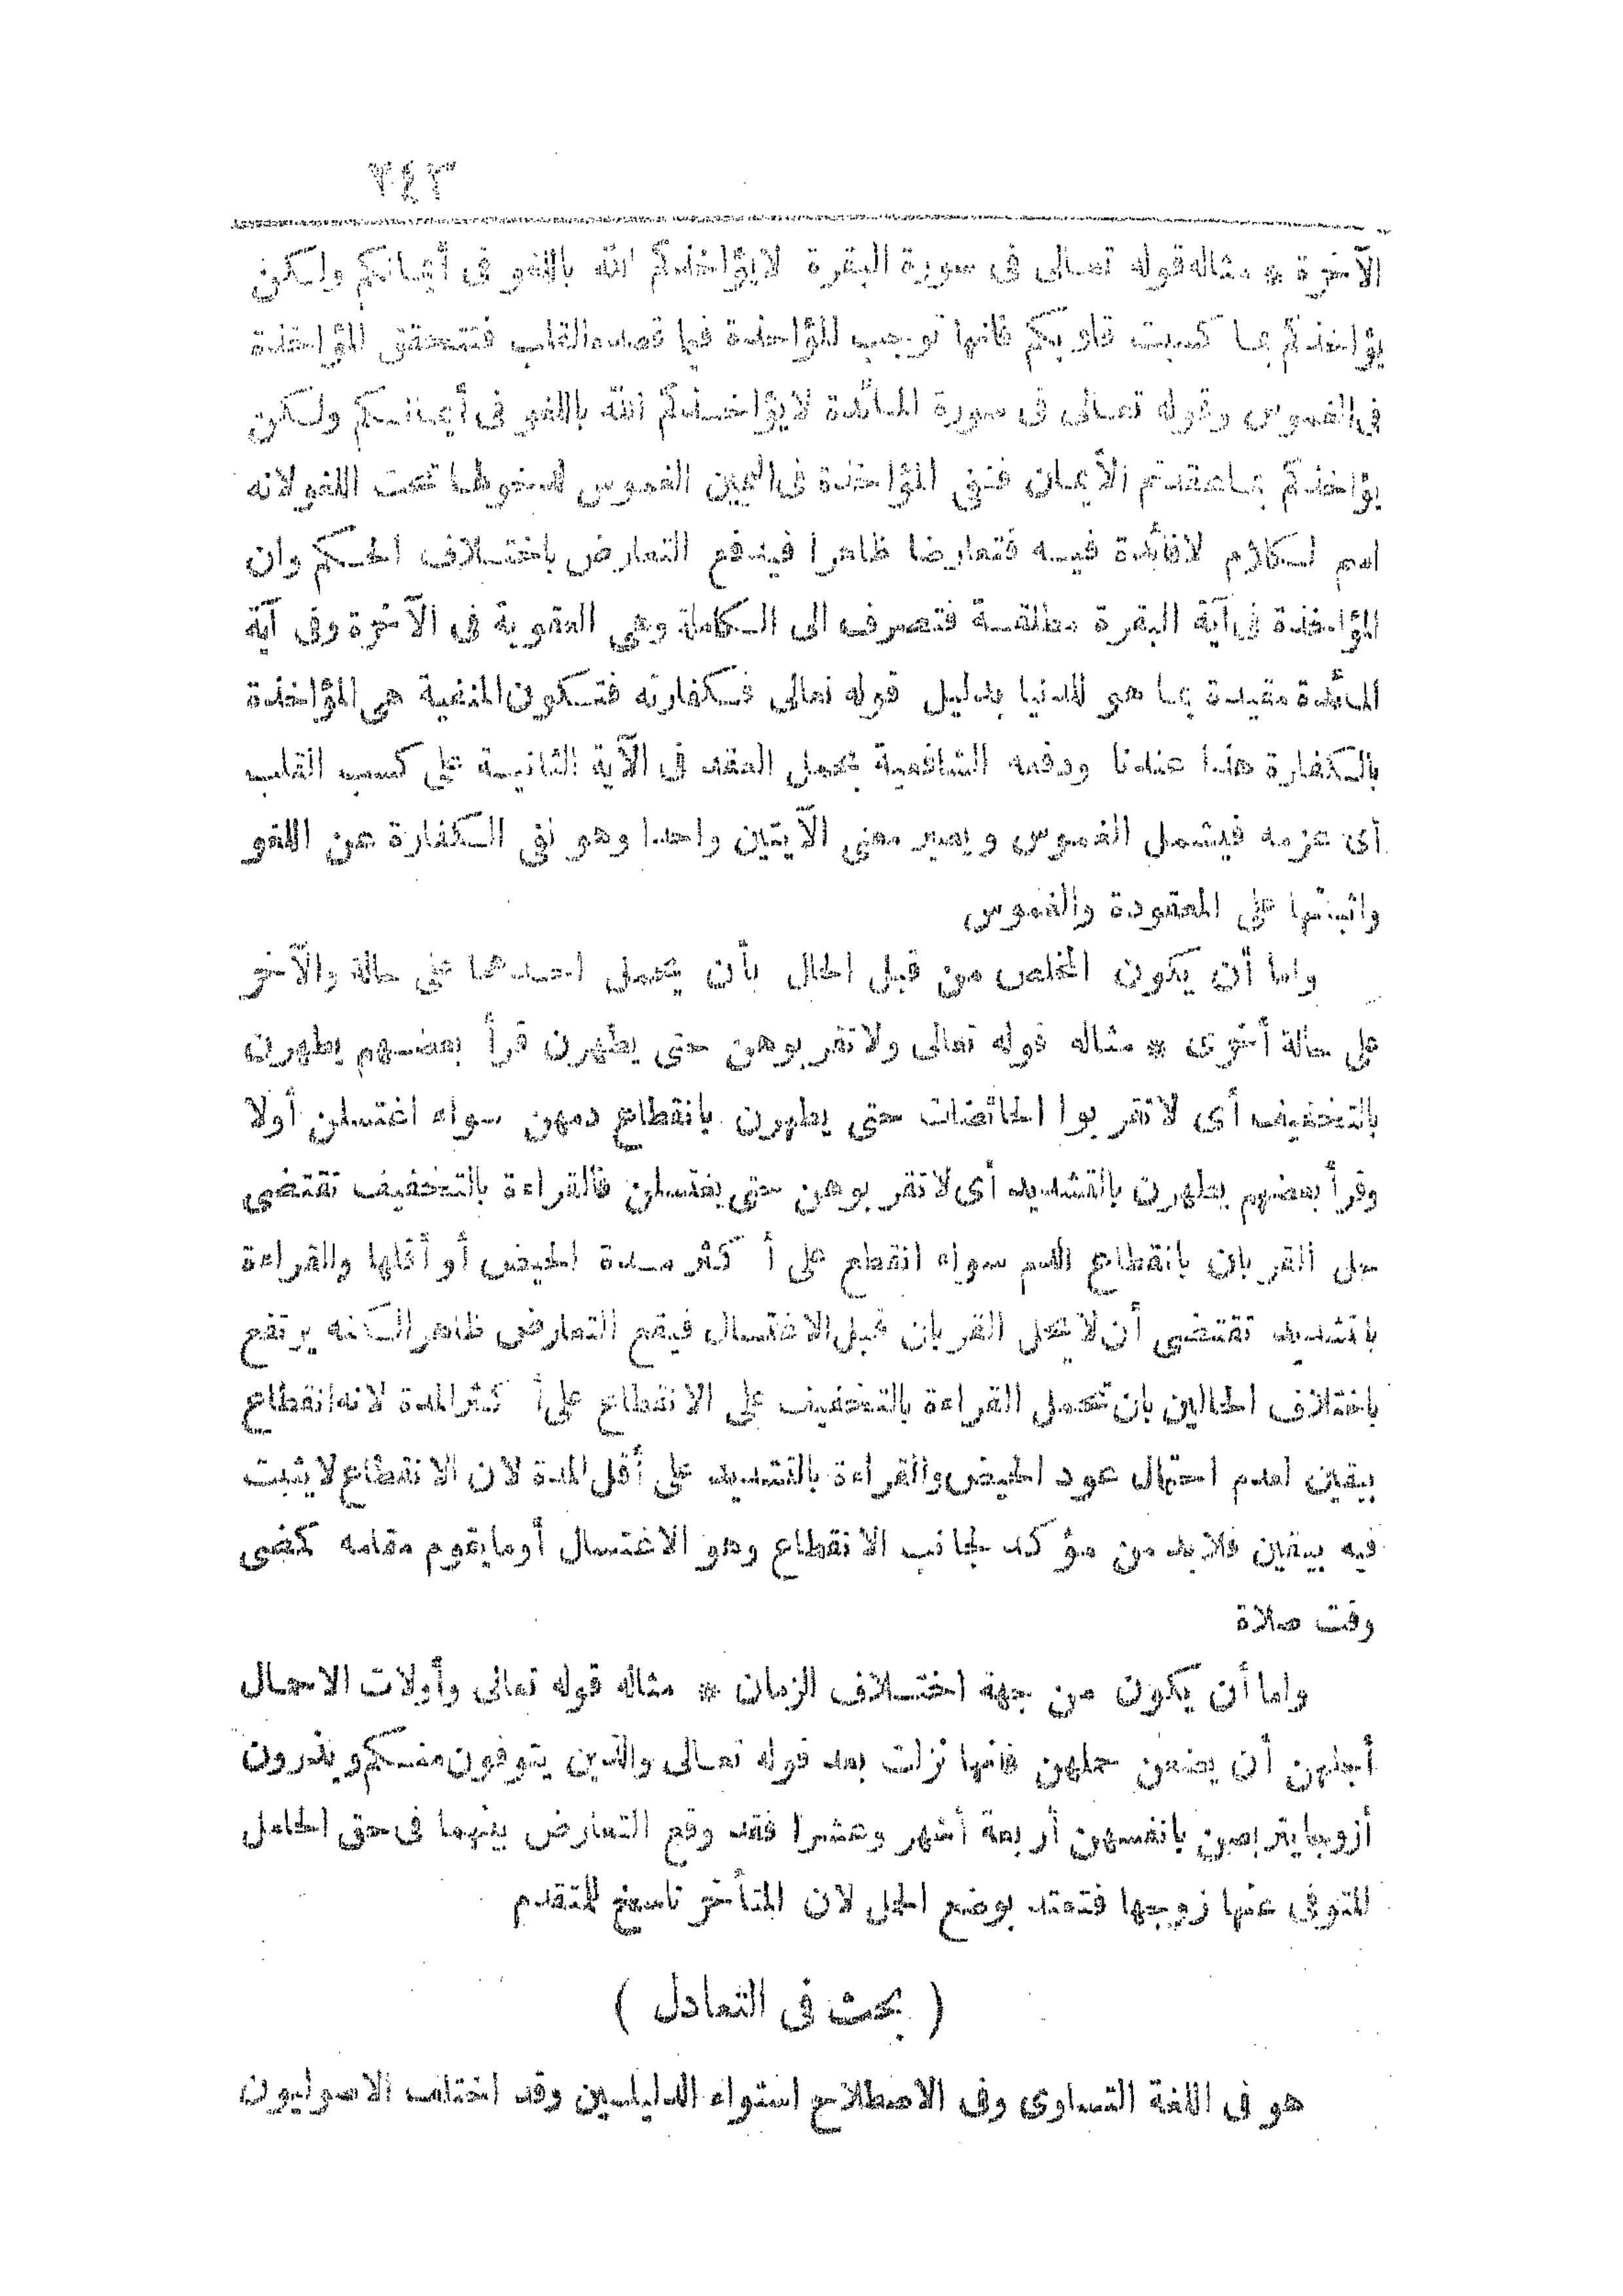 ٢٤٣
الآخرة * مثاله قوله تعالى فى سورة البقرة لا يؤاخذكم الله باللغو فى أيمانكم ولكن
يؤاخذكم بما كسبت قلوبكم فانها توجب للمؤاخذة فيما قصده القلب فتتحقق المؤاخذة
فى الغموس وقوله تعالى فى سورة المائدة لا يؤاخذكم الله باللغو فى أيمانكم ولكن
يؤاخذكم بما عقدتم الأيمان فنفى المؤاخذة فى اليمين الغموس لدخولها تحت اللغو لانه
اسم لكلام لا فائدة فيه فتعارضا ظاهرا فيندفع التعارض باختلاف الحكم وان
المؤاخذة فى آية البقرة مطلقة فتصرف الى الكاملة وهى العقوبة فى الآخرة وفى آية
المائدة مقيدة بما هو للدنيا بدليل قوله تعالى فكفارته فتكون المنفية هى المؤاخذة
بالكفارة هذا عندنا ودفعه الشافعية بحمل العقد فى الآية الثانية على كسب القلب
أى عزمه فيشمل الغموس ويصير معنى الآيتين واحدا وهو نفى الكفارة عن اللغو
واثباتها على المعقودة والغموس
واما أن يكون المخلص من قبل الحال بأن يحمل احدهما على حالة والآخر
على حالة أخرى * مثاله قوله تعالى ولا تقربوهن حتى يطهرن قرأ بعضهم يطهرن
بالتخفيف أى لا تقربوا الحائضات حتى يطهرن بانقطاع دمهن سواء اغتسلن أولا
وقرأ بعضهم يطهرن بالتشديد أى لا تقربوهن حتى يغتسلن فالقراءة بالتخفيف تقتضى
حل القربان بانقطاع الدم سواء انقطع على أكثر مدة الحيض أو أقلها والقراءة
بالتشديد تقتضى أن لا يحل القربان قبل الاغتسال فيقع التعارض ظاهرا لكنه يرتفع
باختلاف الحالين بان تحمل القراءة بالتخفيف على الانقطاع على أكثر المدة لانه انقطاع
بيقين لعدم احتمال عود الحيض والقراءة بالتشديد على أقل المدة لان الانقطاع لا يثبت
فيه بيقين فلا بد من مؤكد لجانب الانقطاع وهو الاغتسال أو ما يقوم مقامه كمضى
وقت صلاة
واما أن يكون من جهة اختلاف الزمان * مثاله قوله تعالى وأولات الاحمال
أجلهن أن يضعن حملهن فانها نزلت بعد قوله تعالى والذين يتوفون منكم ويذرون
أزوجا يتربصن بانفسهن أربعة أشهر وعشرا فقد وقع التعارض بينهما فى حق الحامل
المتوفى عنها زوجها فتعتد بوضع الحمل لان المتأخر ناسخ للمتقدم
( بحث فى التعادل )
هو فى اللغة التساوى وفى الاصطلاح استواء الدليلين وقد اختلف الاصوليون